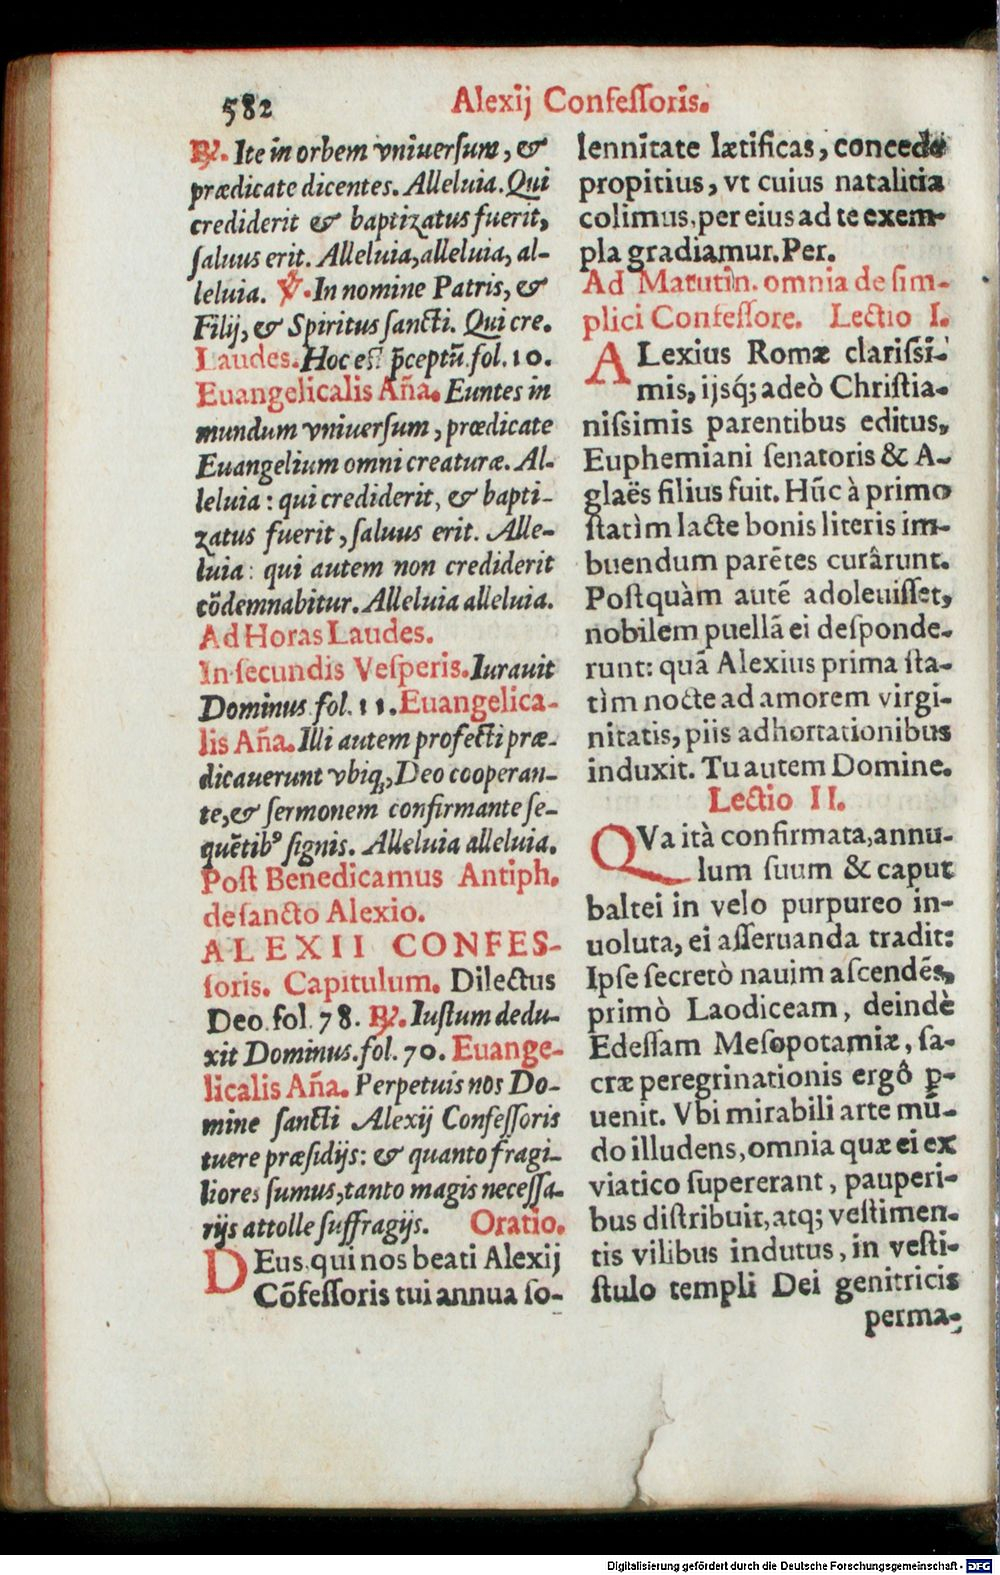 582
Alexij Confeſſoris.
℟. Ite in orbem vniuerſum, &
prædicate dicentes. Alleluia. Qui
crediderit & baptizatus fuerit,
ſaluus erit. Alleluia, alleluia, al-
leluia. ℣. In nomine Patris, &
Filij, & Spiritus ſancti. Qui cre.
Laudes. Hoc est p̄ceptũ. fol. 10.
Euangelicalis Aña. Euntes in
mundum vniuerſum, prædicate
Euangelium omni creaturæ. Al-
leluia: qui crediderit, & bapti-
zatus fuerit, ſaluus erit. Alle-
luia: qui autem non crediderit
cõdemnabitur. Alleluia alleluia.
Ad Horas Laudes.
In ſecundis Veſperis. Iurauit
Dominus fol. 11. Euangelica-
lis Aña. Illi autem profecti præ-
dicauerunt vbiq;, Deo cooperan-
te, & ſermonem confirmante ſe-
quẽtibꝰ ſignis. Alleluia alleluia.
Poſt Benedicamus Antiph.
de ſancto Alexio.
ALEXII CONFES-
ſoris. Capitulum. Dilectus
Deo. fol. 78. ℟. Iuſtum dedu-
xit Dominus. fol. 70. Euange-
licalis Aña. Perpetuis nos Do-
mine ſancti Alexij Confeſſoris
tuere præſidijs: & quanto fragi-
liores ſumus, tanto magis neceſſa-
rijs attolle ſuffragijs. Oratio.
DEus, qui nos beati Alexij
Cõfeſſoris tui annua ſo-
lennitate lætificas, concede
propitius, vt cuius natalitia
colimus, per eius ad te exem-
pla gradiamur. Per.
Ad Matutin. omnia de ſim-
plici Confeſſore. Lectio I.
ALexius Romæ clariſſi-
mis, ijsq́; adeò Chriſtia-
niſsimis parentibus editus,
Euphemiani ſenatoris & A-
glaës filius fuit. Hũc à primo
ſtatìm lacte bonis literis im-
buendum parẽtes curârunt.
Poſtquàm autẽ adoleuiſſet,
nobilem puellã ei deſponde-
runt: quã Alexius prima ſta-
tìm nocte ad amorem virgi-
nitatis, piis adhortationibus
induxit. Tu autem Domine.
Lectio II.
QVa ità confirmata, annu-
lum ſuum & caput
baltei in velo purpureo in-
uoluta, ei aſſeruanda tradit:
Ipſe ſecretò nauim aſcendẽs,
primò Laodiceam, deindè
Edeſſam Meſopotamiæ, ſa-
cræ peregrinationis ergô ꝑ-
uenit. Vbi mirabili arte mũ-
do illudens, omnia quæ ei ex
viatico ſupererant, pauperi-
bus diſtribuit, atq; veſtimen-
tis vilibus indutus, in veſti-
ſtulo templi Dei genitricis
perma-
Digitalisierung gefördert durch die Deutsche Forschungsgemeinschaft - DFG